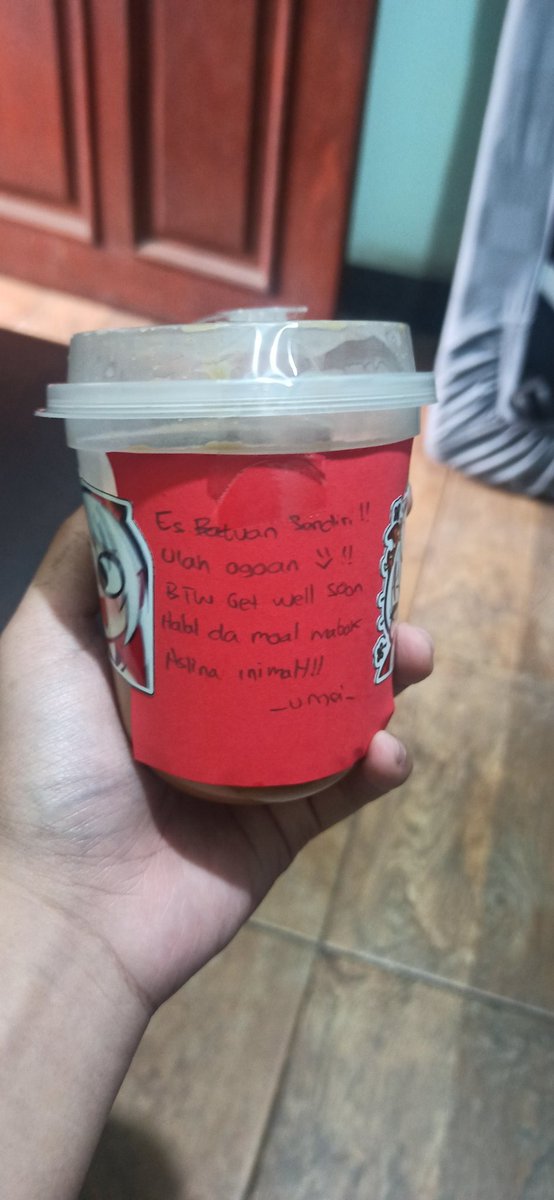 Es Batuan Sandiri!!
Ulah ogoan !!
BTW Get well soon
Halal da moal mabok
Aslina inimaH!!
_Umei_